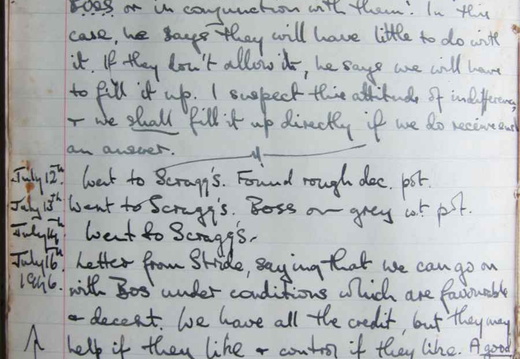 Boss or in conjunction with them. In this
case, he says they will have little to do with
it. If they don't allow it, he says we will have
to fill it up. I suspect this attitude of indifference
+ we shall fill it up directly if we do receive such
an answer.
July 12th. Went to Scragg's. Found rough dec. pot.
July 13th Went to Scragg's. Boss on grey wt. pot.
July 14th Went to Scragg's.
July 16th Letter from Stride, saying that we can go on
1946. with Bos under conditions which are favourable
+ decent. We have all the credit, but they may
help if they like + control if they like. A good